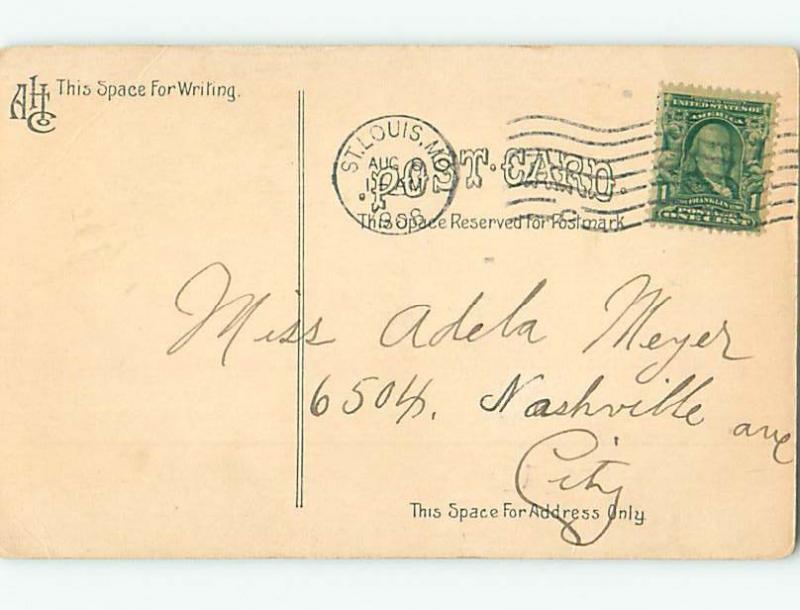 AHCo This Space For Writing.
ST. LOUIS, MO.
AUG
AM
1908
POST CARD.
This Space Reserved for Postmark
UNITED STATES OF
AMERICA
1 FRANKLIN 1
POSTAGE
ONE CENT
Miss Adela Meyer
6504, Nashville ave
City
This Space For Address Only